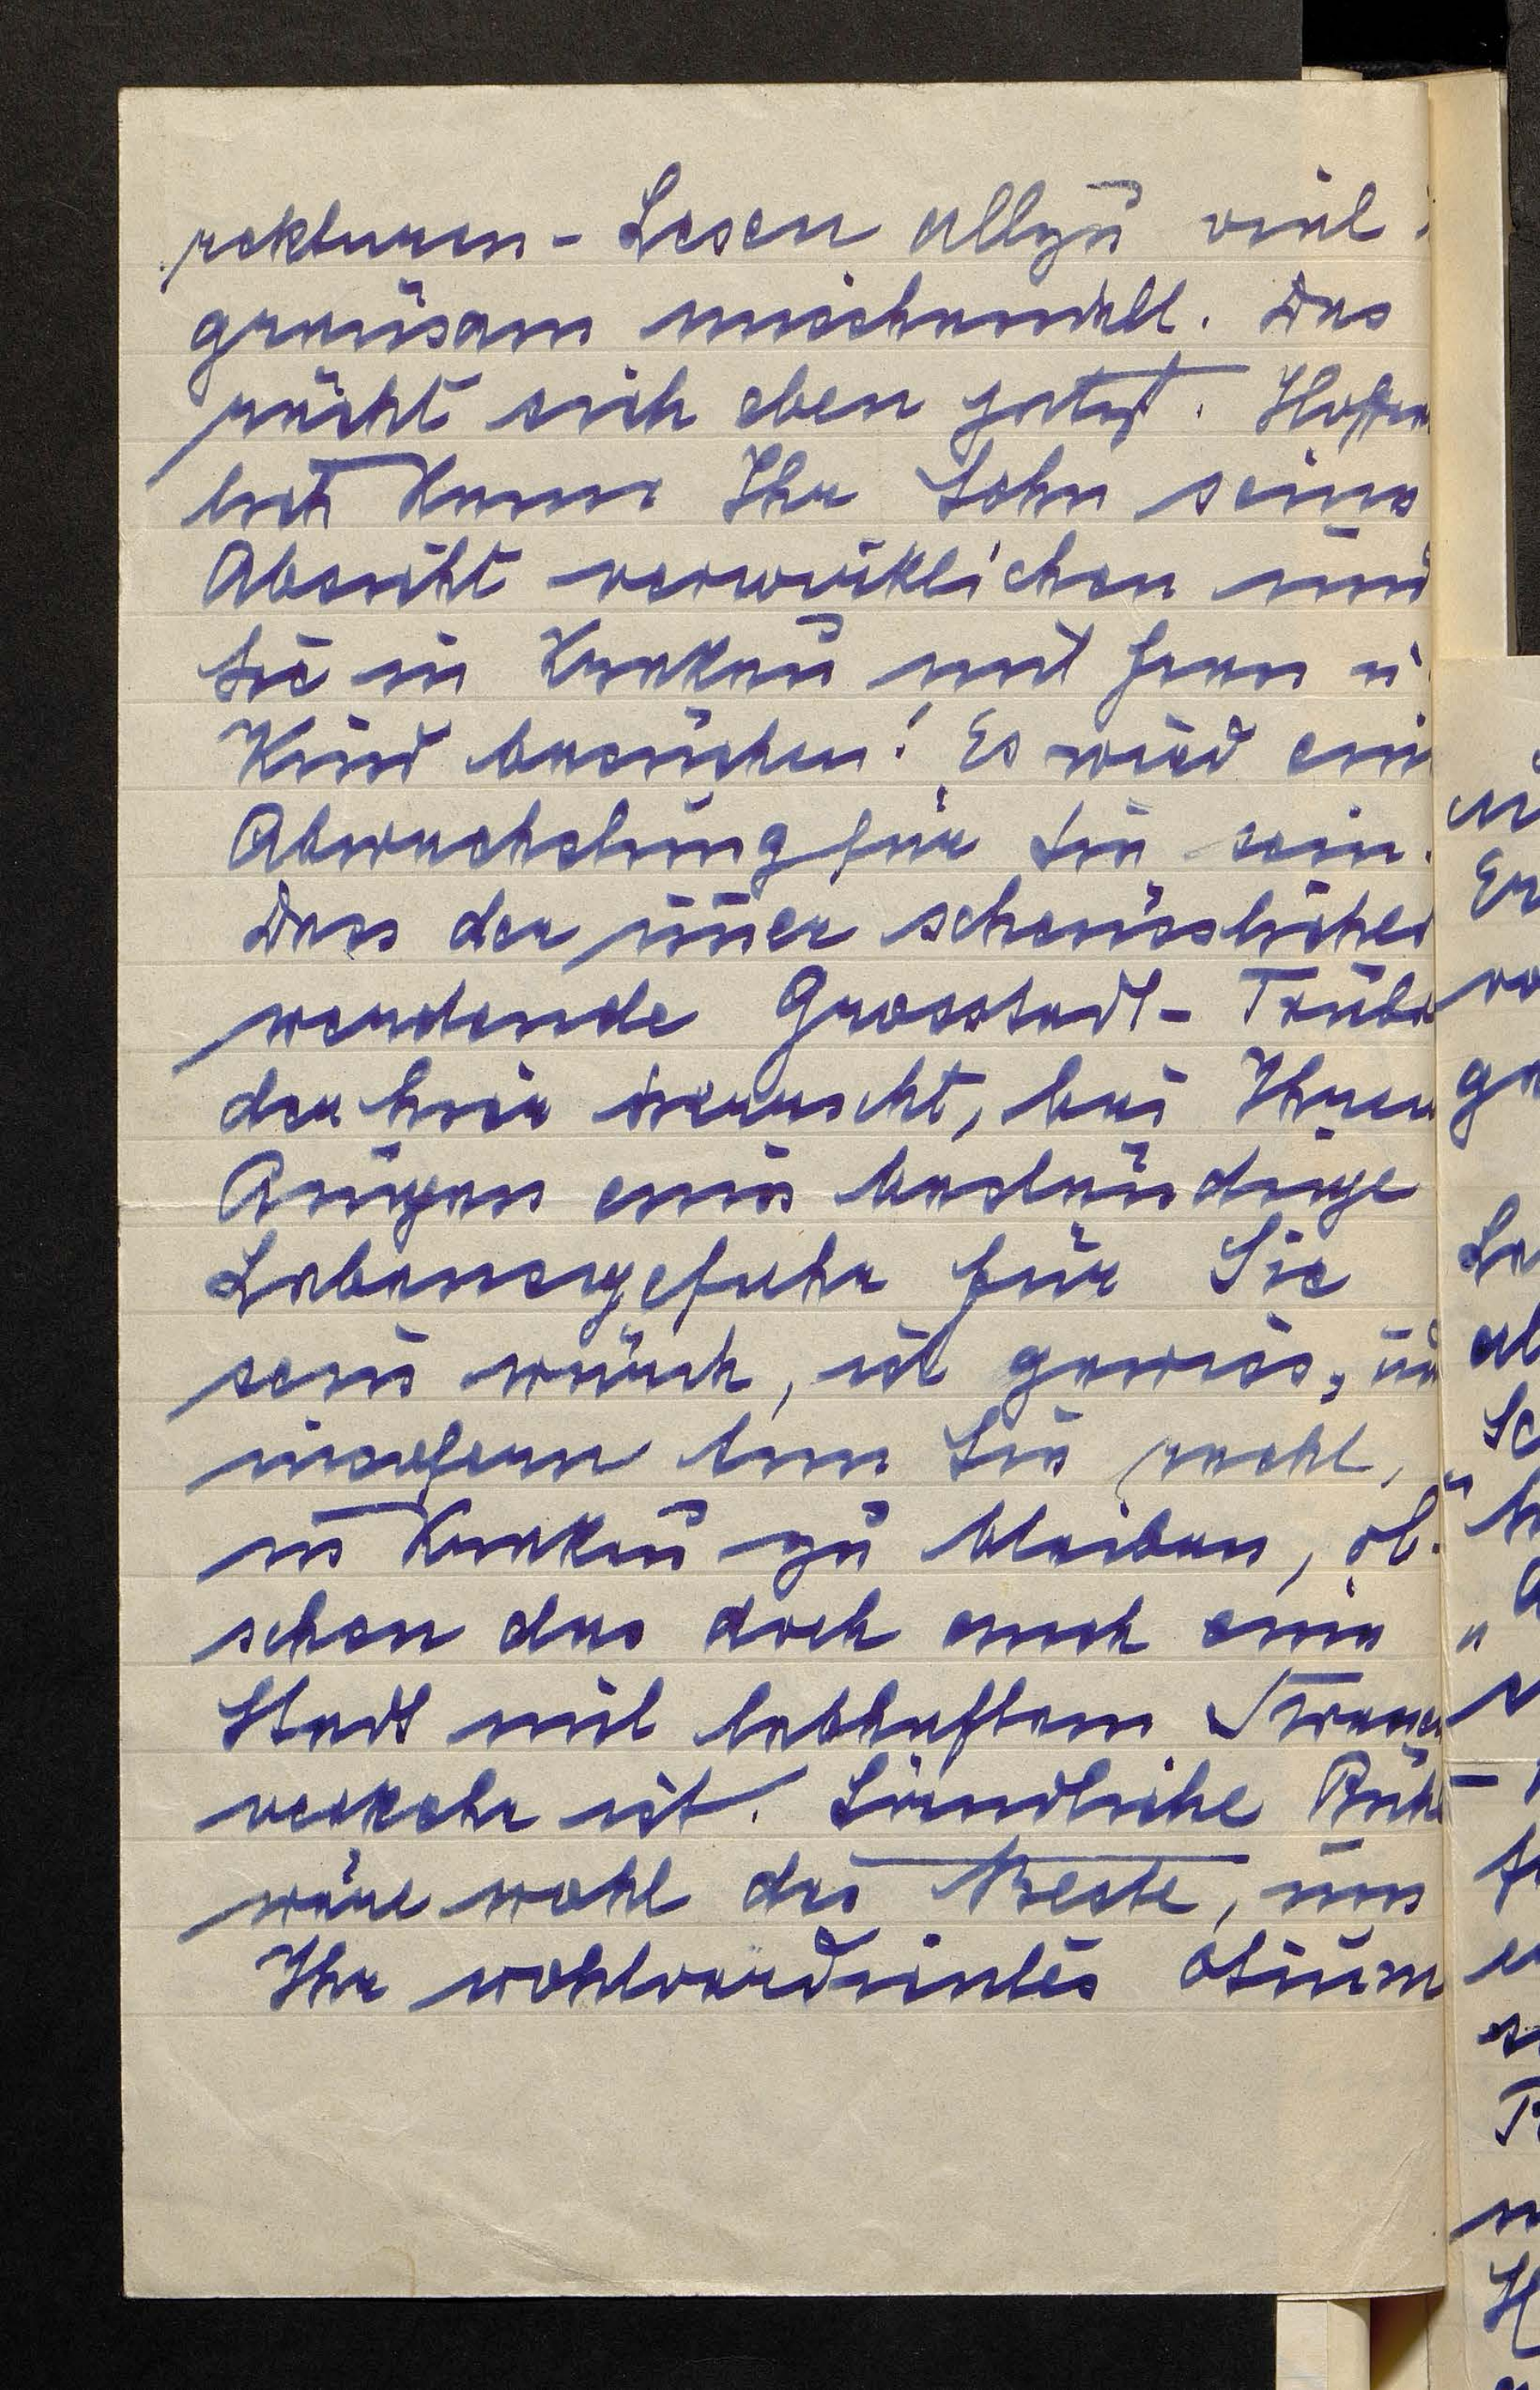 rekturen-Lesen allzu viel
grausam misshandelt. Das
rächt sich eben jetzt. Hoffen
lich kann Ihr Sohn seine
Absicht verwirklichen und
Sie in Krakau mit Frau u
Kind besuchen! Es wird ein
Abwechslung für Sie sein.
Dass der immer scheusslicher
werdende Grosstadt-Trube
der hier herrscht, bei Ihren
Augen eine beständige
Lebensgefahr für Sie
sein würde, ist gewiss, un
insofern tun Sie recht,
in Krakau zu bleiben, ob-
schon das doch auch eine
Stadt mit lebhaftem Strassen
verkehr ist. Ländliche Ruhe
wäre wohl das Beste, um
Ihr wohlverdientes otium